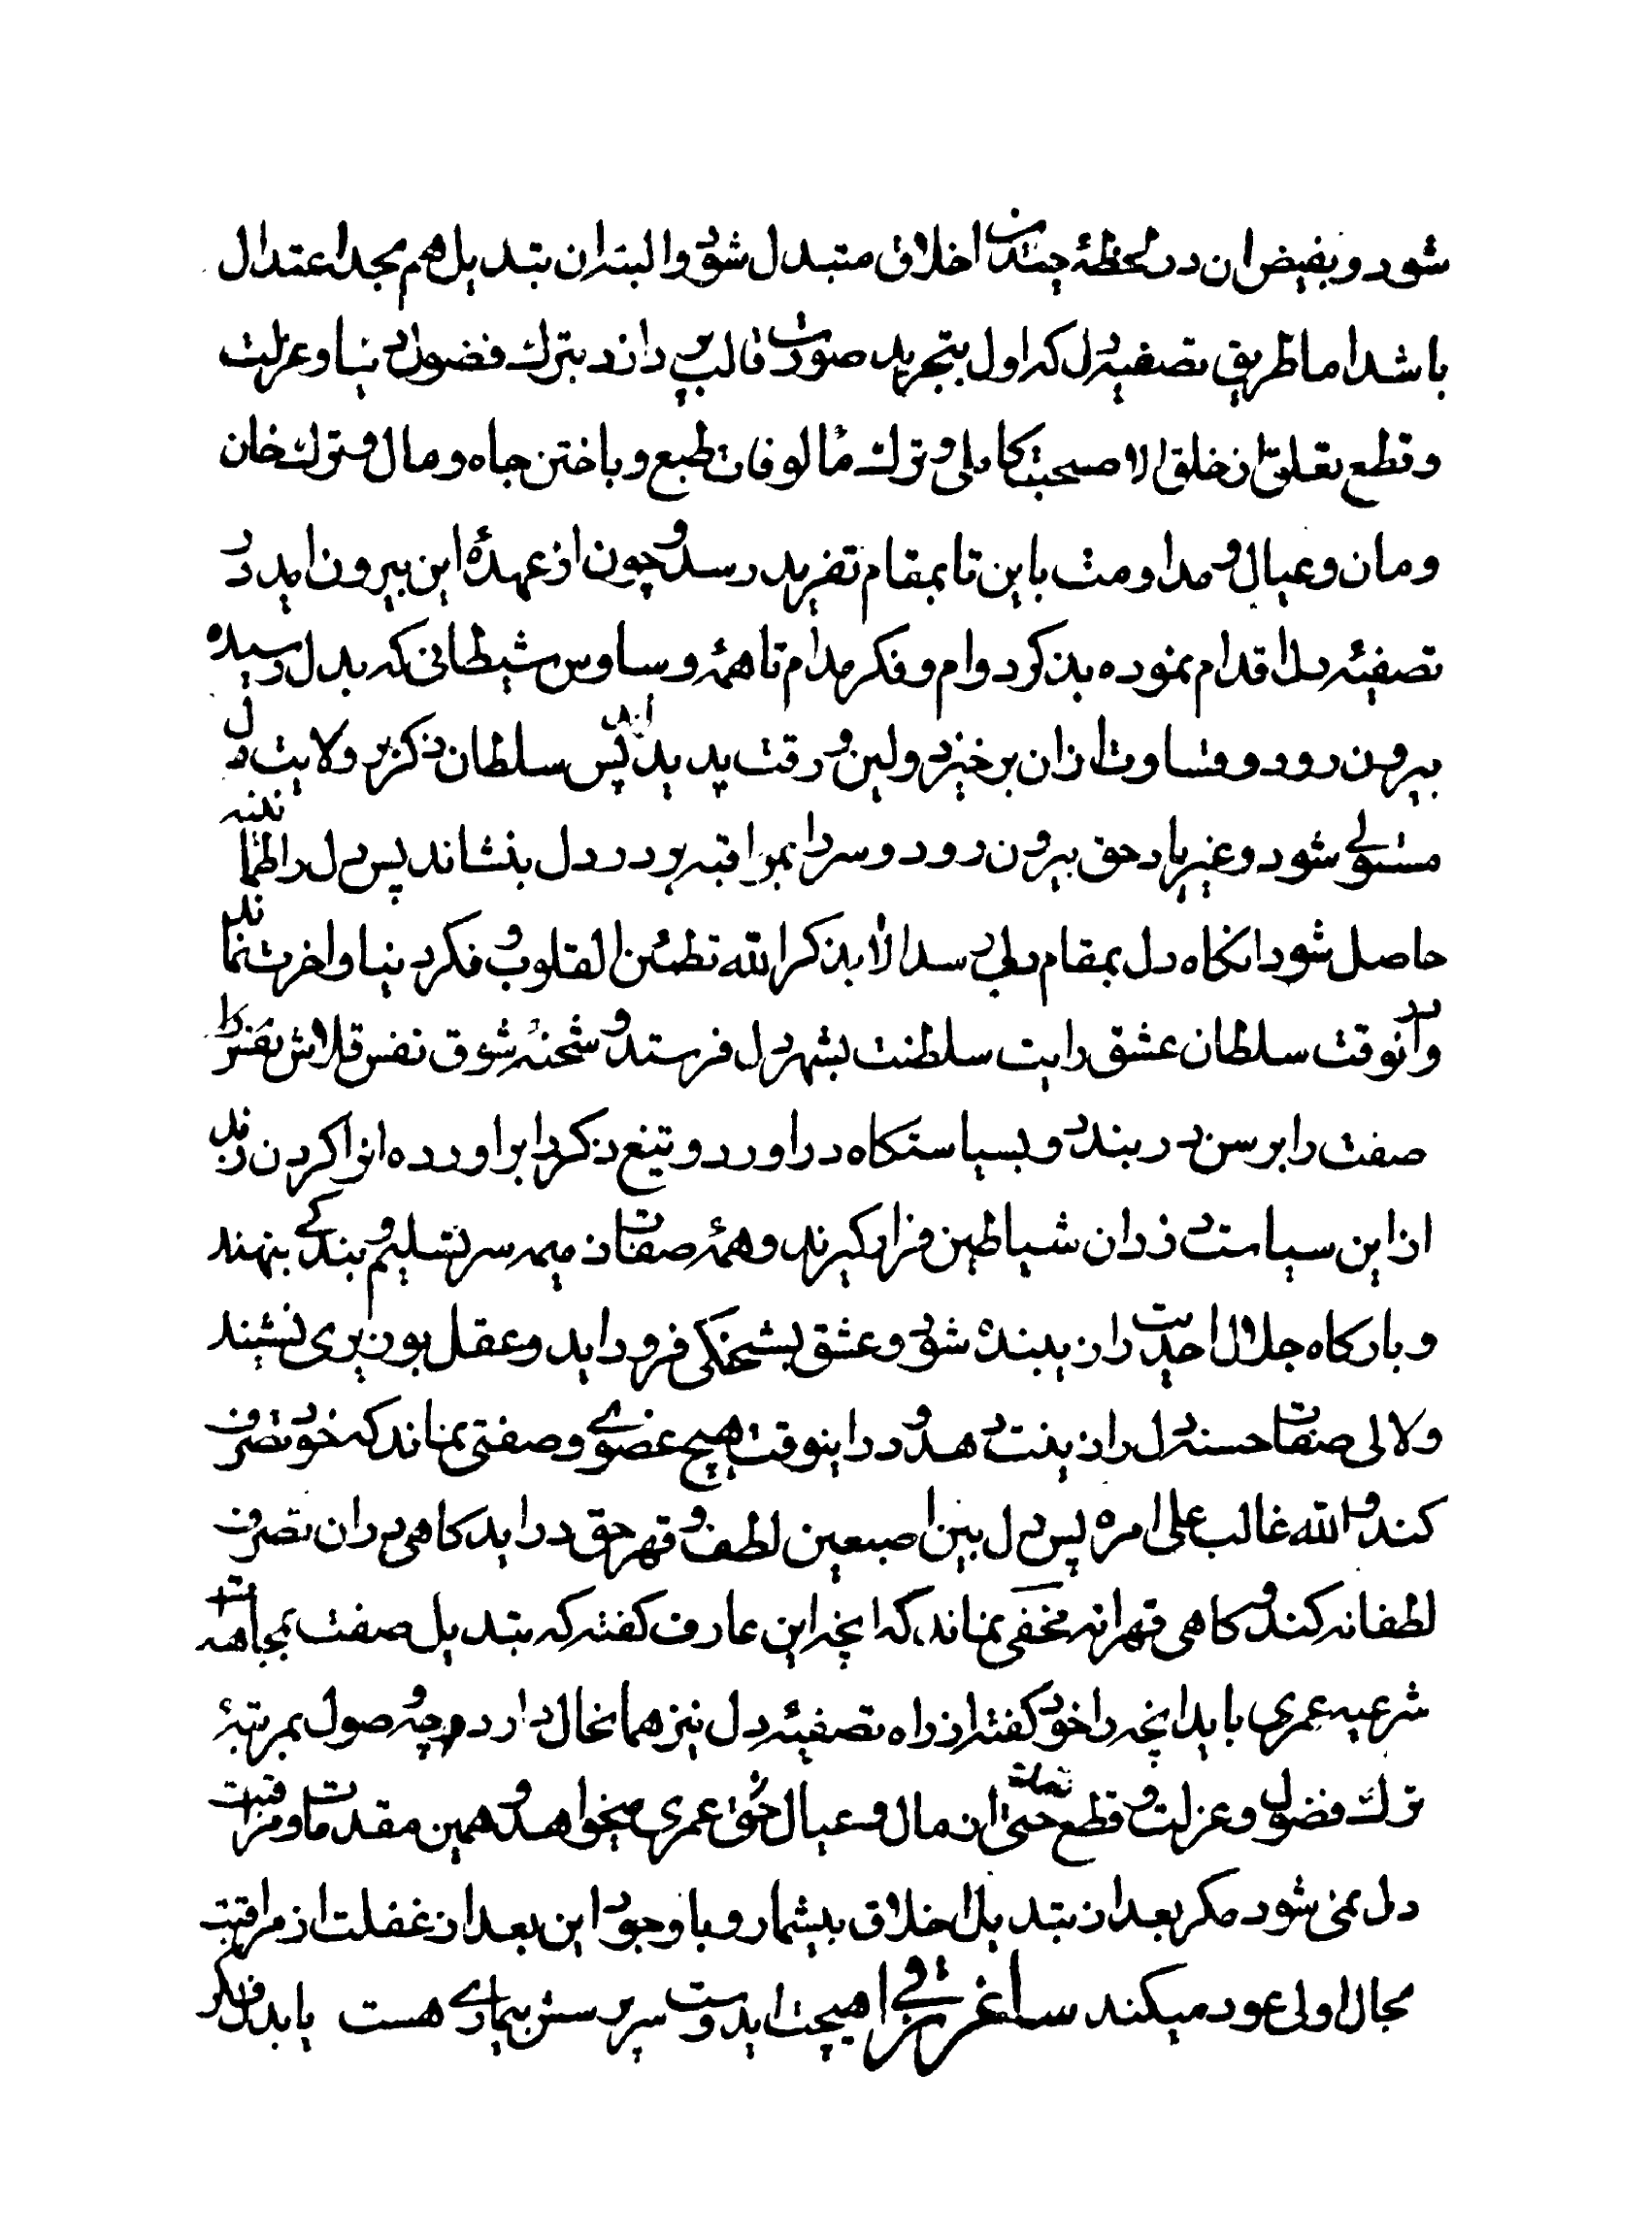 شود و بفیض ان در لحظهٔ چندین اخلاق متبدل شود و البته ان تبدیل هم بحد اعتدال
باشد اما طریق تصفیهٔ دل که اول بتجرید صورت قالب پردازد بترک فضول دنیا و عزلت
و قطع تعلق از خلق الا صحبت کاملی و ترک مألوفات طبع و باختن جاه و مال و ترک خان
و مان و عیال و مداومت باین تا بمقام تفرید رسد و چون از عهدهٔ این بیرون اید در
تصفیهٔ دل اقدام نموده بذکر دوام و فکر مدام تا همهٔ وساوس شیطانی که بدل رسیده
بیرون رود و قساوت از ان برخیزد و لین و رقت پدید اید پس سلطان ذکر بر ولایت دل
مستولی شود و غیر یاد حق بیرون رود و سر را بمراقبه بر در دل بنشاند پس دل را طمأنینه
حاصل شود انکاه دل بمقام دلی رسد الا بذکر الله تطمئن القلوب و فکر دنیا و اخرت نماند
و در آنوقت سلطان عشق رایت سلطنت بشهر دل فرستد و شحنهٔ شوق نفس قلاش
صفت را بر سن در بندد و بسیاستکاه در اورد و تیغ ذکر را بر اورده انرا کردن زند
از این سیاست دزدان شیاطین فرار کیرند و همهٔ صفات ذمیمه سر تسلیم و بندکی بنهند
و بارکاه جلال احدیت را زیبنده شود و عشق بشحنکی فرود اید و عقل بوزیری نشیند
و لالی صفات حسنه دل را زینت دهد و در اینوقت هیچ عضوی و صفتی نماند که خود تصرف
کند و الله غالب علی امره پس دل بین اصبعین لطف و قهر حق در اید کاهی در ان تصرف
لطفانه کند و کاهی قهرانه مخفی نماند که انچه این عارف کفته که بتدیل صفت بمجاهدت
شرعیه عمری باید انچه را خود کفته از راه تصفیهٔ دل نیز همانحال دارد و چه حصول بمرتبهٔ
ترک فضول و عزلت و قطع تعلقات حتی از مال و عیال خود عمری میخواهد و همین مقدمات و مراقبت
دل نمی شود مکر بعد از تبدیل اخلاق بیشمار و با وجود این بعد از غفلت از مراقبت
بحال اولی عود میکند ساغر ترا هیچت اید دوست سر پرسش بیماری هست یا بدل